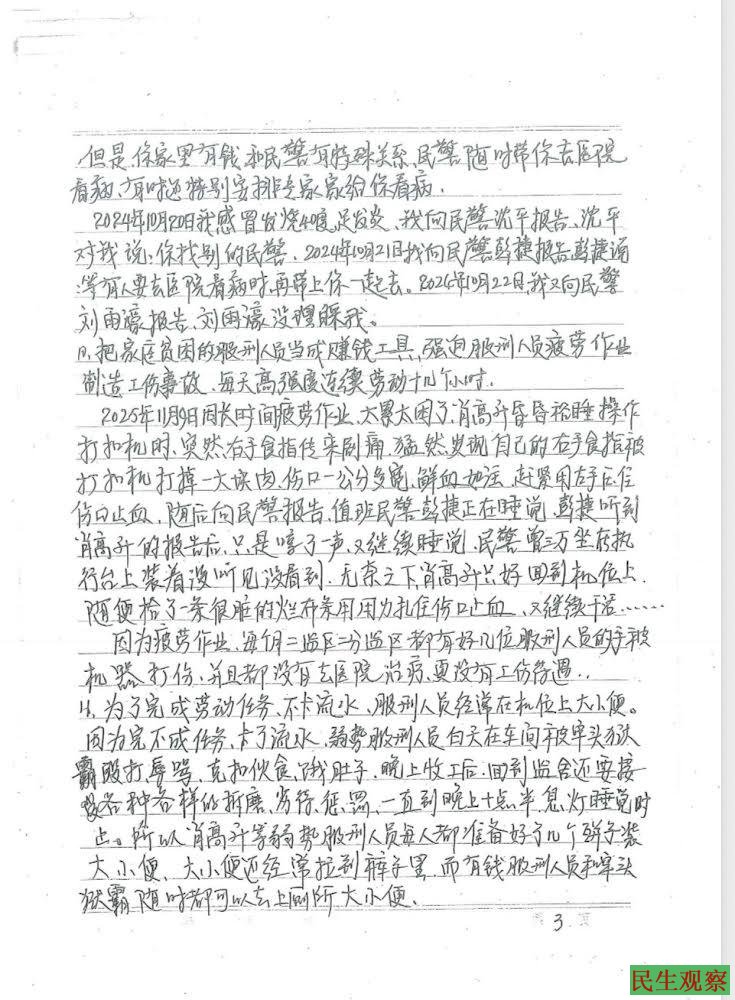 但是你家里有钱和民警有特殊关系、民警随时带你去医院
看病、有时还特别安排专家家给你看病.
2024年10月20日我感冒发烧40度、足发炎、我向民警沈平报告、沈平
对我说:你找别的民警、2024年10月21日我向民警彭捷报告、彭捷说
:等有人要去医院看病时、再带上你一起去。2024年10月22日、我又向民警
刘雨濠报告、刘雨濠没理睬我。
把家庭贫困的服刑人员当成赚钱工具、强迫服刑人员疲劳作业
制造工伤事故、每天高强度连续劳动十几个小时.
2025年11月9日因长时间疲劳作业、太累太困了、肖高升昏昏裕睡操作
打扣机时、突然右手食指传来剧痛、猛然发现自己的右手食指被
打扣机打掉一大块肉、伤口一公分多宽、鲜血如注、赶紧用左手压住
伤口止血、随后向民警报告、值班民警彭捷正在睡觉、彭捷听到
肖高升的报告后、只是哼了一声、又继续睡觉、民警曾三万坐在执
行台上装着没听见没看到、无奈之下肖高升只好回到机位上、
随便捡了一条很脏的烂布条用力扎住伤口止血、又继续干活……
因为疲劳作业、每个月二监区二分监区都有好几位服刑人员的手被
机器打伤、并且都没有去医院治病、更没有工伤待遇..
为了完成劳动任务、不卡流水、服刑人员经常在机位上大小便。
因为完不成任务、卡了流水、弱势服刑人员白天在车间被牢头狱
霸殴打辱骂、克扣伙食、饿肚子、晚上收工后、回到监舍还要接
受各种各样的折磨、劣待、惩罚、一直到晚上十点半、息灯睡觉时
止。所以肖高升等弱势服刑人员每人都准备好了几个瓶子装
大小便、大小便还经常拉到裤子里、而有钱服刑人员和牢头
狱霸随时都可以去上厕所大小便.
3
民生观察